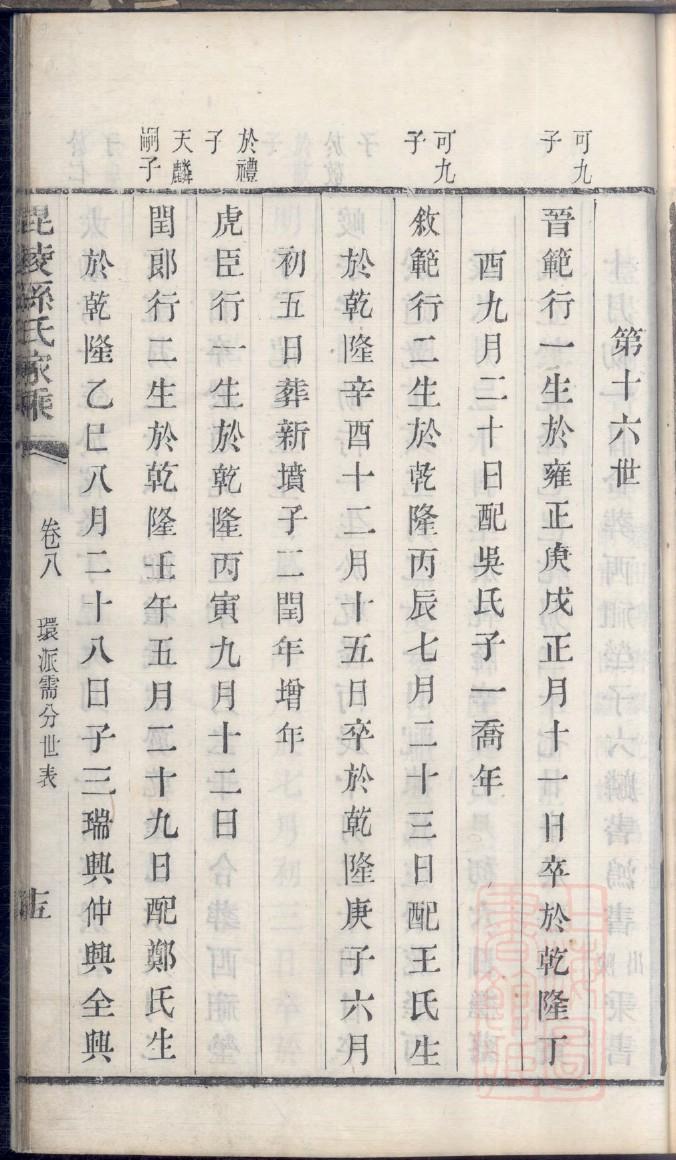 第十六世
可九
子
晉範行一生於雍正庚戌正月十一日卒於乾隆丁
酉九月二十日配吳氏子一喬年
可九
子
敘範行二生於乾隆丙辰七月二十三日配王氏生
於乾隆辛酉十二月十五日卒於乾隆庚子六月
初五日葬新墳子二閏年增年
於禮
子
虎臣行一生於乾隆丙寅九月十二日
天麟
嗣子
閏郎行二生於乾隆壬午五月二十九日配鄭氏生
於乾隆乙巳八月二十八日子三瑞興仲興全興
毘陵孫氏家乘
卷八
環派需分世表